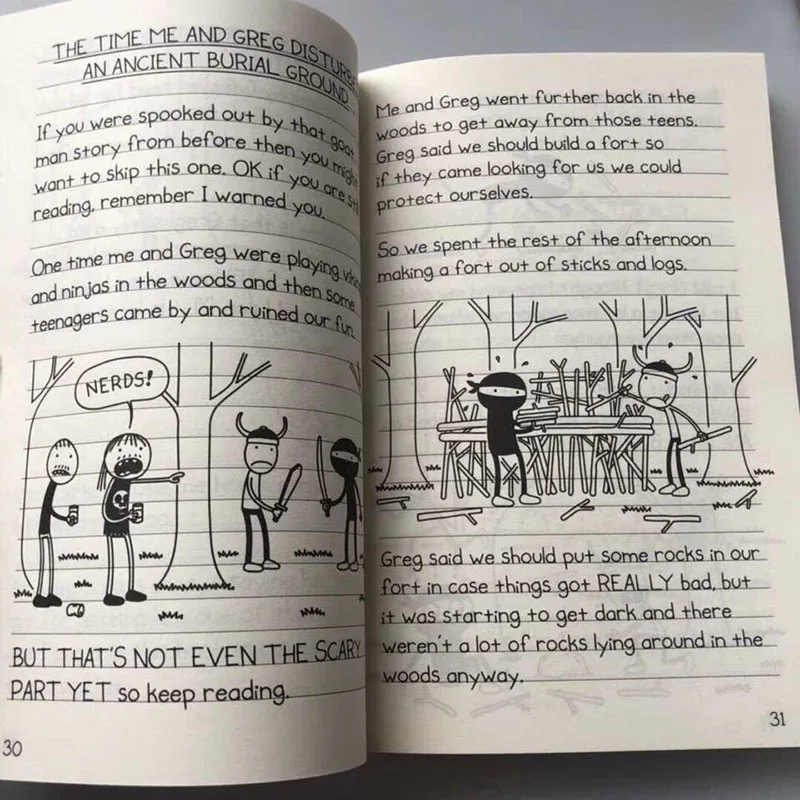 THE TIME ME AND GREG DISTURBE
AN ANCIENT BURIAL GROUND
If you were spooked out by that goat
man story from before then you might
want to skip this one. OK if you are st
reading, remember I warned you.
One time me and Greg were playing vikin
and ninjas in the woods and then some
teenagers came by and ruined our fun.
NERDS!
BUT THAT'S NOT EVEN THE SCARY
PART YET so keep reading.
30
Me and Greg went further back in the
woods to get away from those teens.
Greg said we should build a fort so
if they came looking for us we could
protect ourselves.
So we spent the rest of the afternoon
making a fort out of sticks and logs.
Greg said we should put some rocks in our
fort in case things got REALLY bad, but
it was starting to get dark and there
weren't a lot of rocks lying around in the
woods anyway.
31